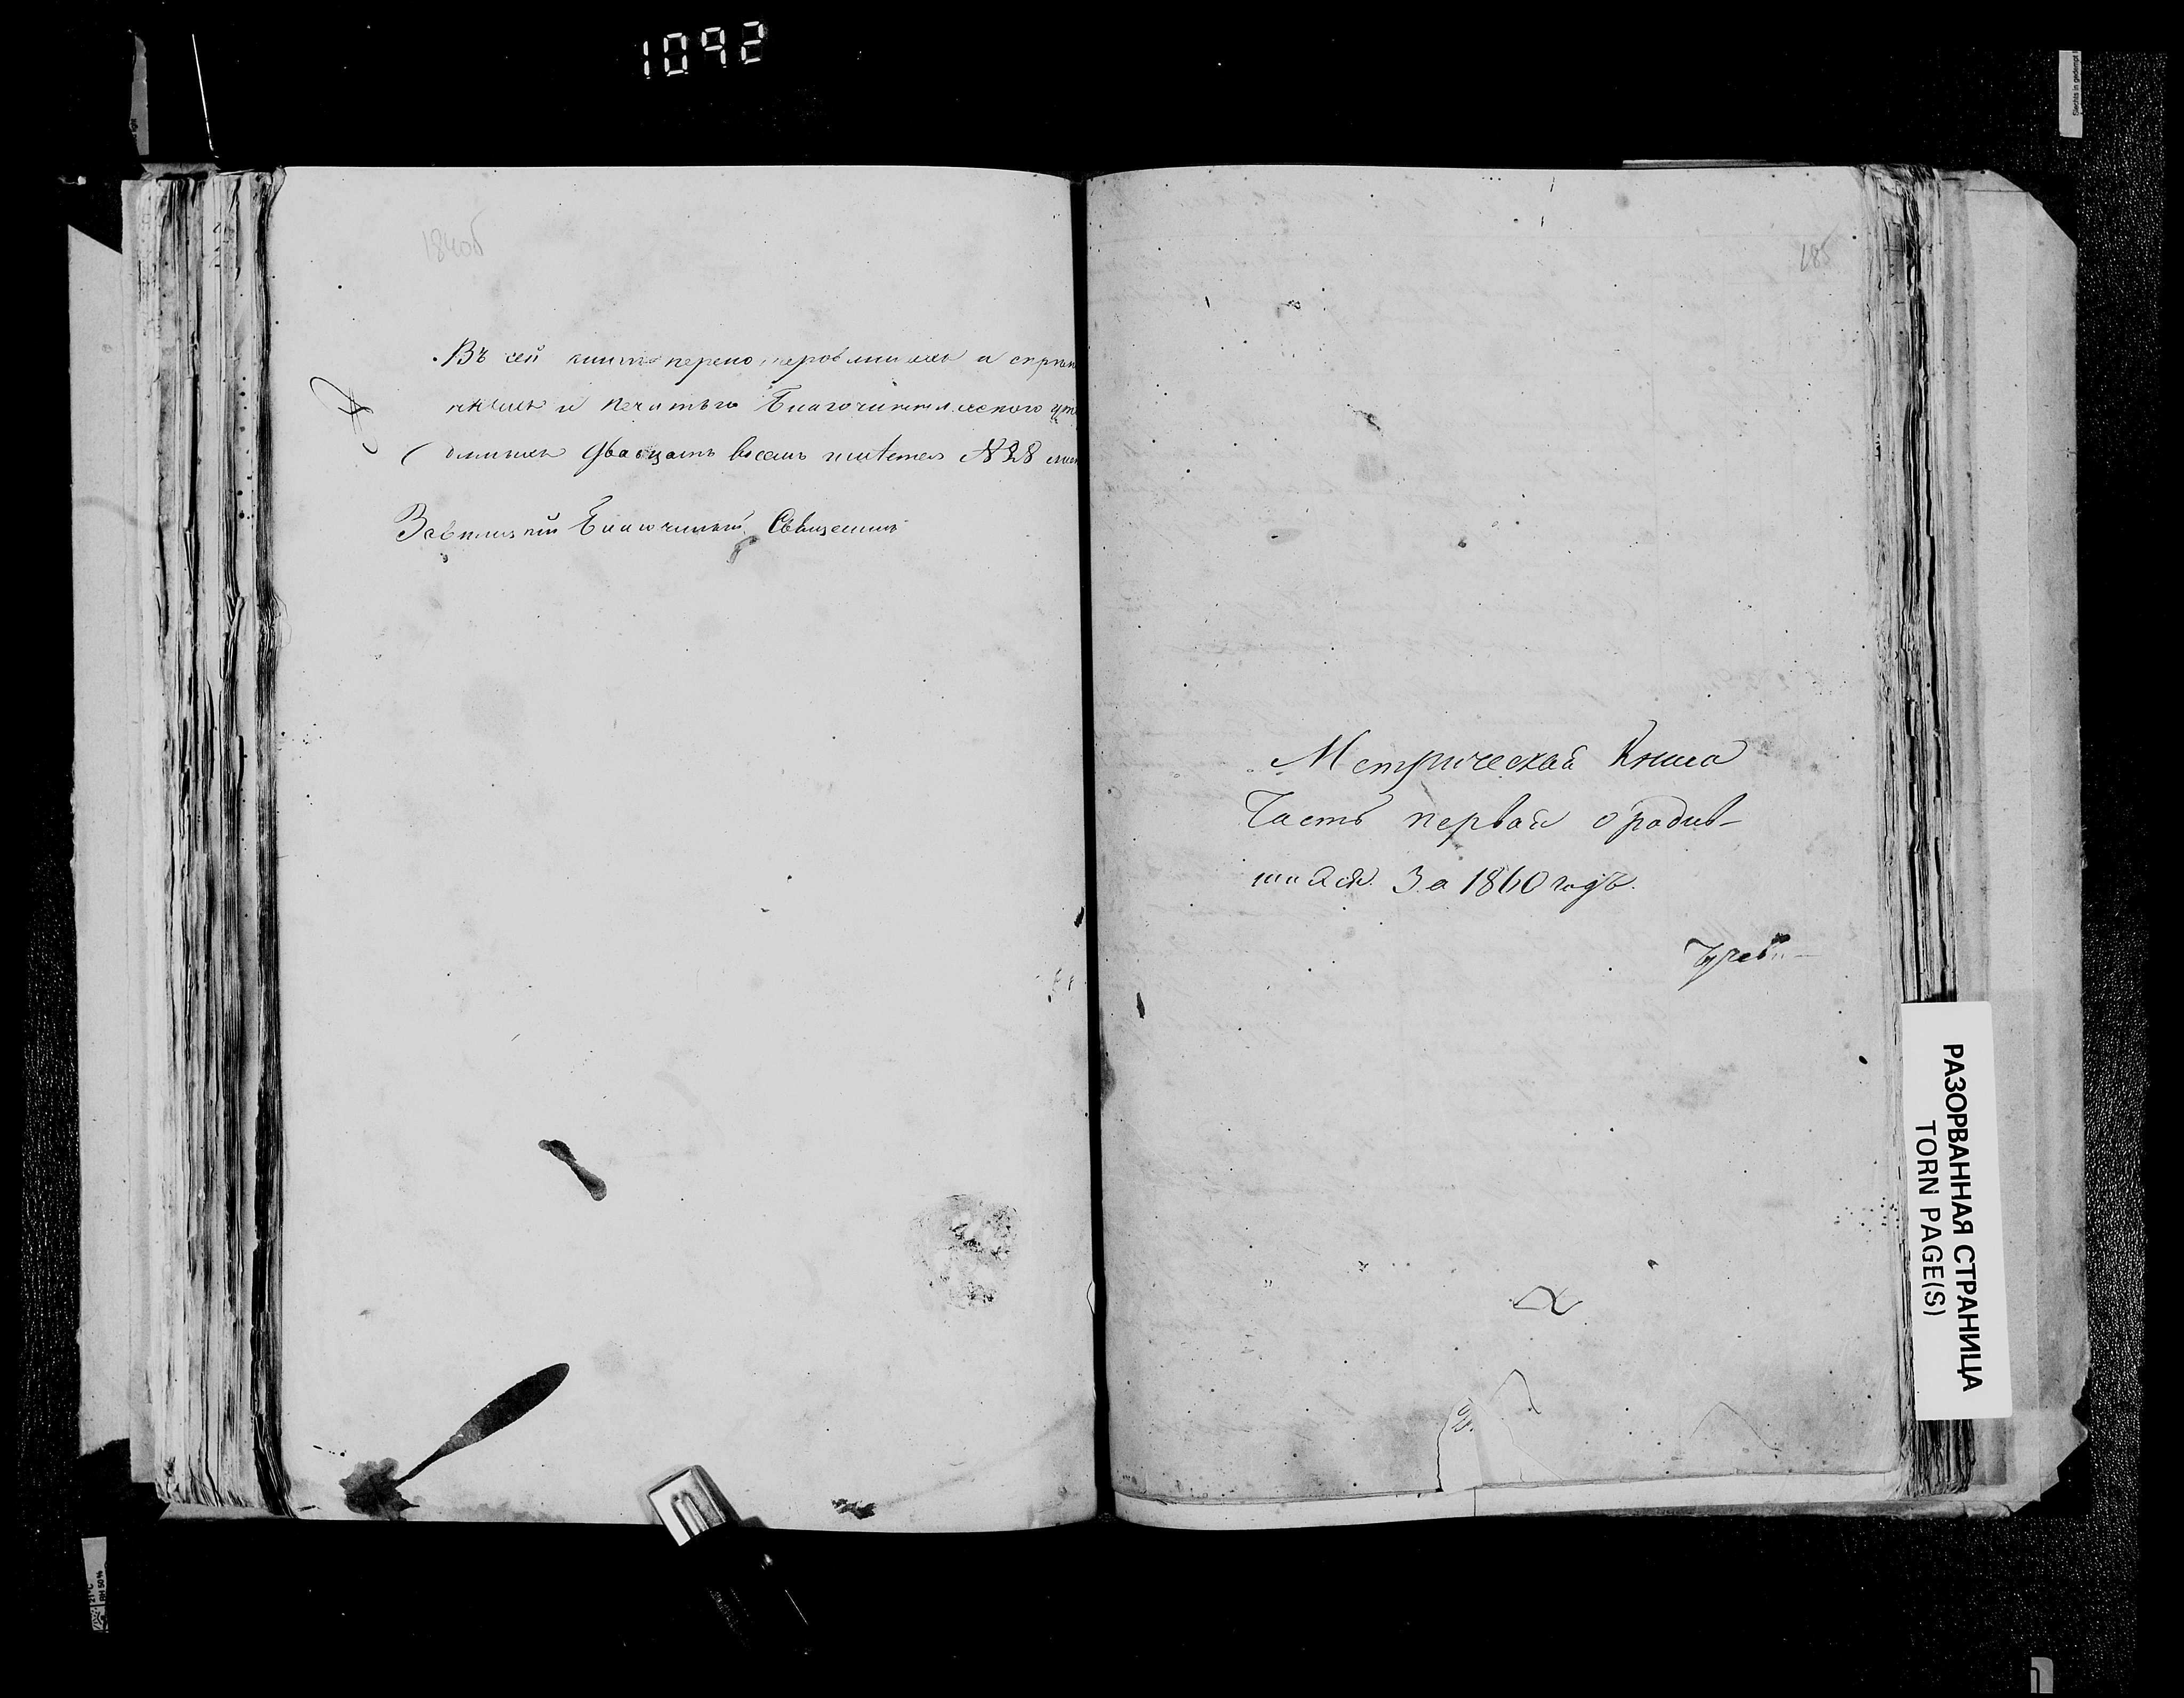 1092
184об
Въ сей книге перено, нерованныхъ и скреп
ленныхъ и печатью Благочиннического ут
двадцать восемь листовъ №28
Благочинный Священникъ
185
Метрическая Книга
Часть первая о родив-
шихся. За 1860 годъ.
РАЗОРВАННАЯ СТРАНИЦА
TORN PAGE(S)